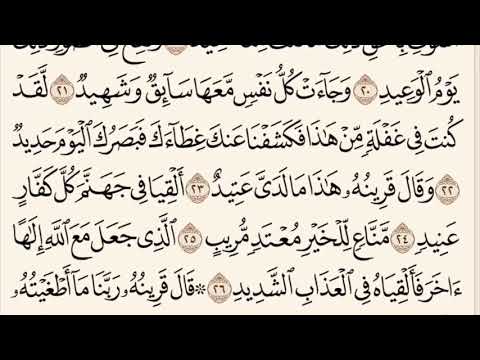 يَوْمُ ٱلْوَعِيدِ ٢٠ وَجَآءَتْ كُلُّ نَفْسٍ مَّعَهَا سَآئِقٌ وَشَهِيدٌ ٢١ لَّقَدْ
كُنتَ فِي غَفْلَةٍ مِّنْ هَٰذَا فَكَشَفْنَا عَنكَ غِطَآءَكَ فَبَصَرُكَ ٱلْيَوْمَ حَدِيدٌ
٢٢ وَقَالَ قَرِينُهُۥ هَٰذَا مَا لَدَىَّ عَتِيدٌ ٢٣ أَلْقِيَا فِي جَهَنَّمَ كُلَّ كَفَّارٍ
عَنِيدٍ ٢٤ مَّنَّاعٍ لِّلْخَيْرِ مُعْتَدٍ مُّرِيبٍ ٢٥ ٱلَّذِي جَعَلَ مَعَ ٱللَّهِ إِلَٰهًا
ءَاخَرَ فَأَلْقِيَاهُ فِي ٱلْعَذَابِ ٱلشَّدِيدِ ٢٦ ۞ قَالَ قَرِينُهُۥ رَبَّنَا مَآ أَطْغَيْتُهُۥ